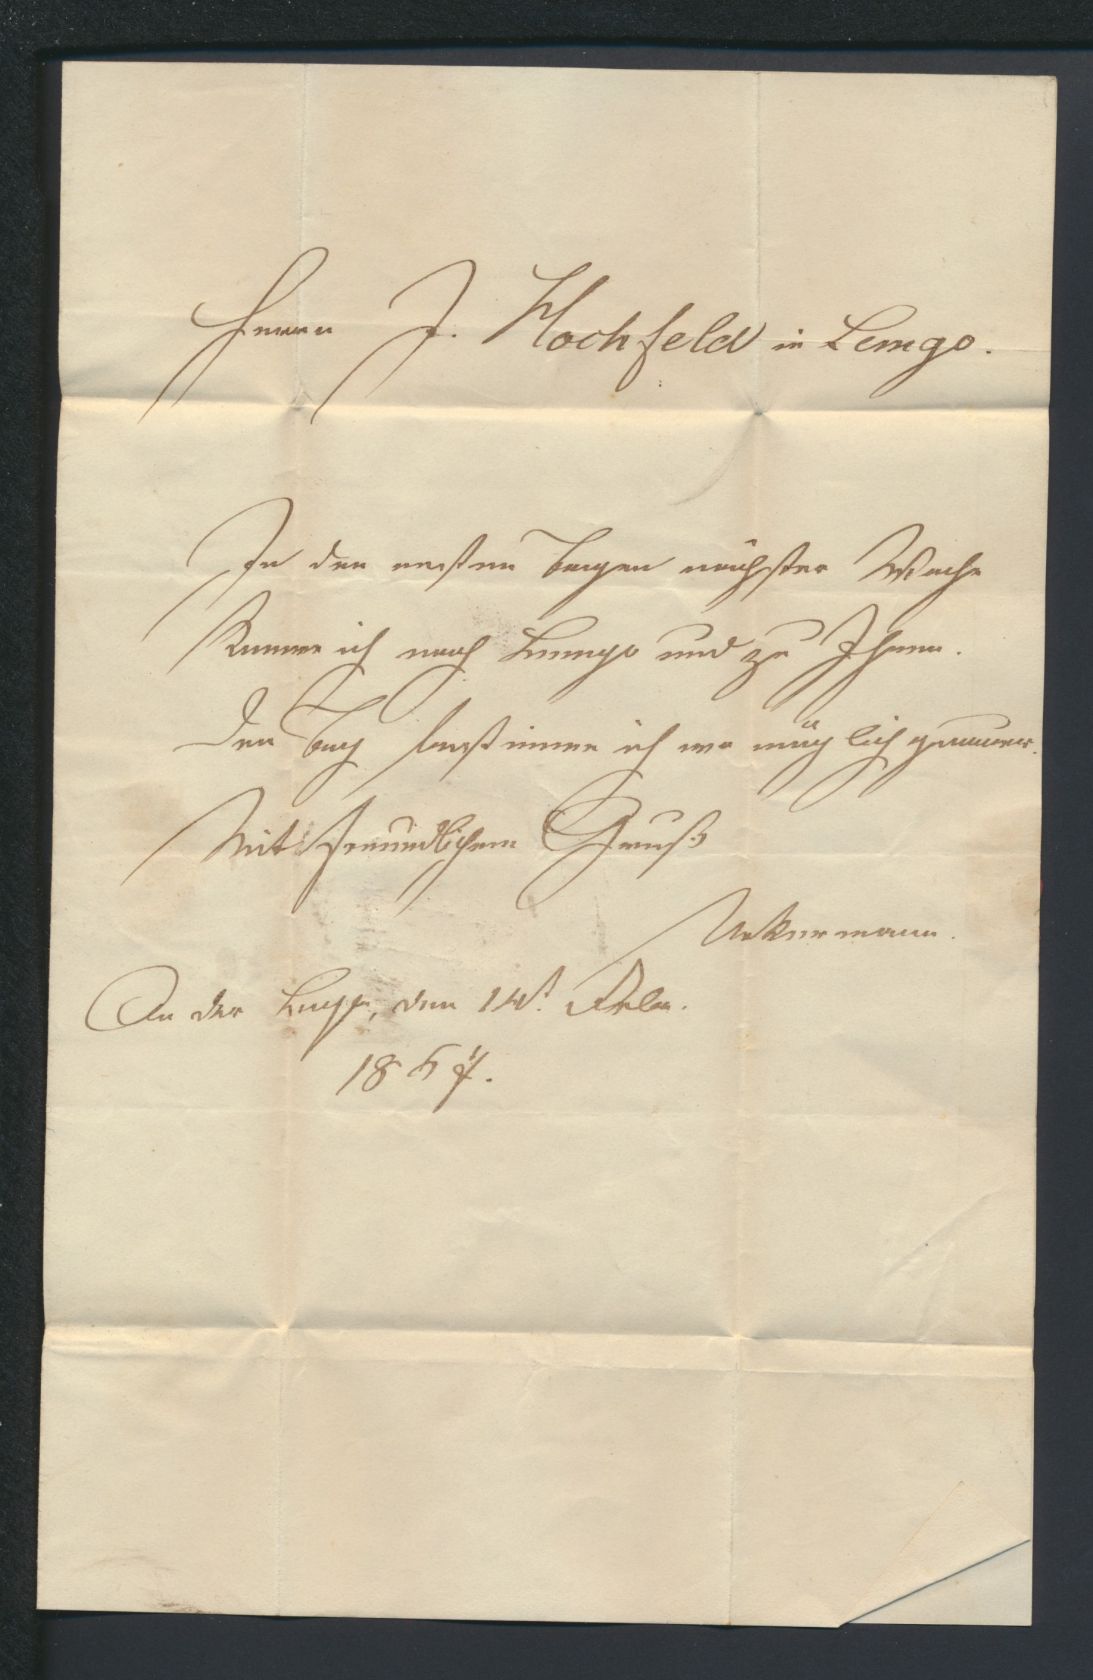 Herrn J. Hochfeld in Lemgo.
In den ersten Tagen nächster Woche
komme ich nach Lemgo und zu Ihnen.
Den Tag bestimme ich wo möglich genauer.
Mit freundlichem Gruß
Uekermann.
An der den 14t. Febr.